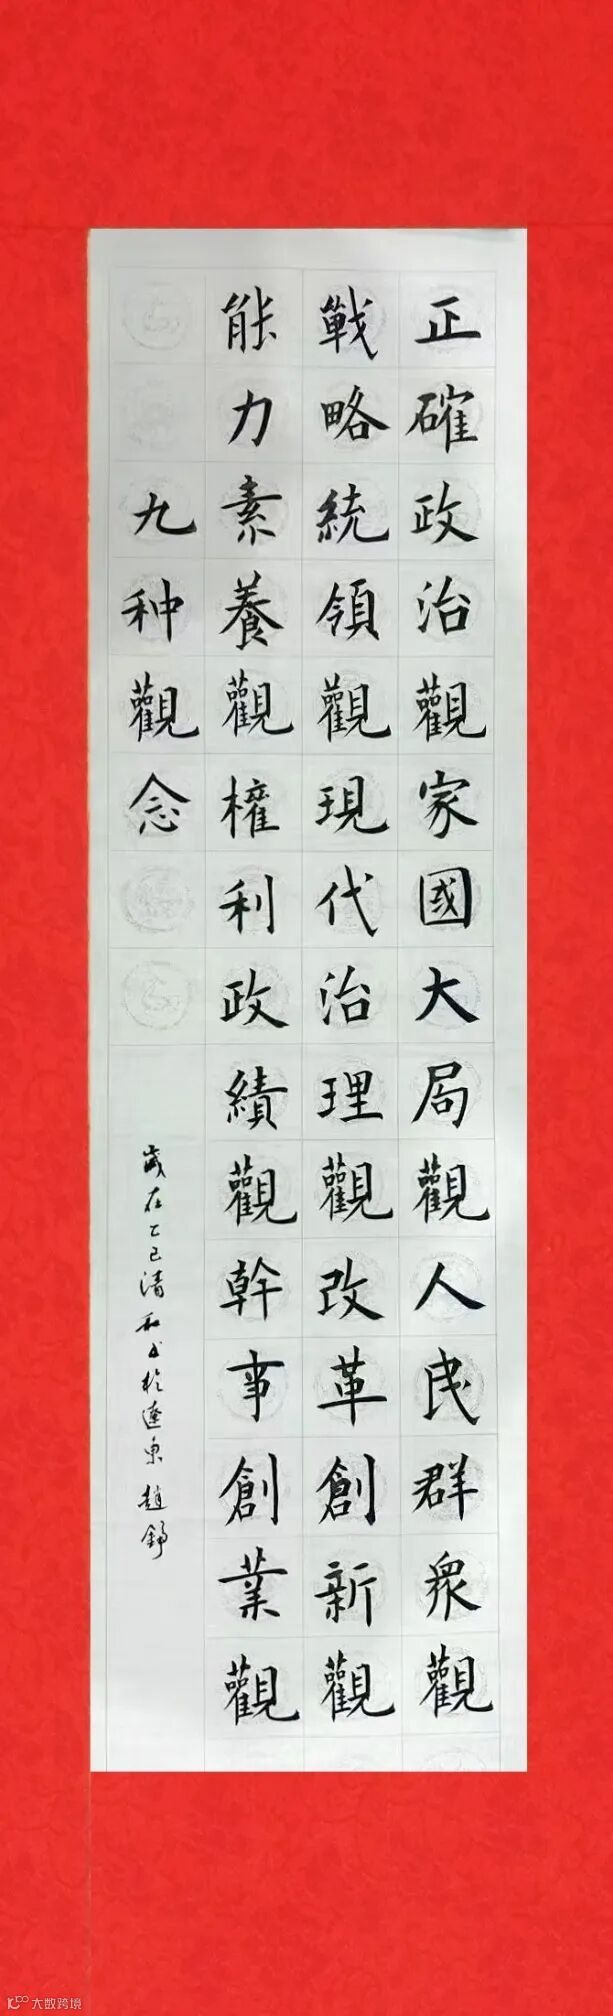 正確政治觀家國大局觀人民群衆觀
戰略統領觀現代治理觀改革創新觀
能力素養觀權利政績觀幹事創業觀
九种觀念
歲在乙巳清和書於遼東 趙錚
大数跨境